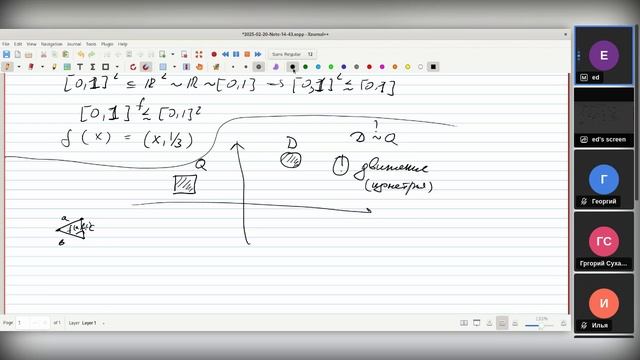 *2025-02-20-Note-14-43.xopp - Xournal++
File Edit View Navigation Journal Tools Plugin Help
Sans Regular 12
[0,1]² ⊆ ℝ² ~ ℝ ~ [0,1] → [0,1]² ≲ [0,1]
[0,1] ≲ [0,1]²
f
f(x) = (x, 1/3)
Q
D
?
D ~ Q
движения
a
b
Page 1 of 1 Layer: Layer 1
E
ed
ed's screen
Г
Георгий
ГС
Григорий Суха...
И
Илья